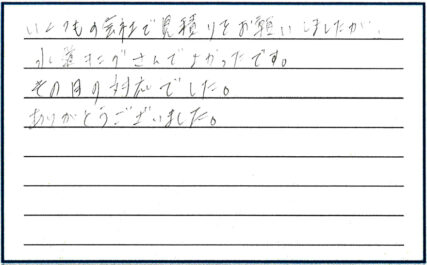 いくつもの会社で見積りをお願いしましたが、
水道キングさんでよかったです。
その日の対応でした。
ありがとうございました。